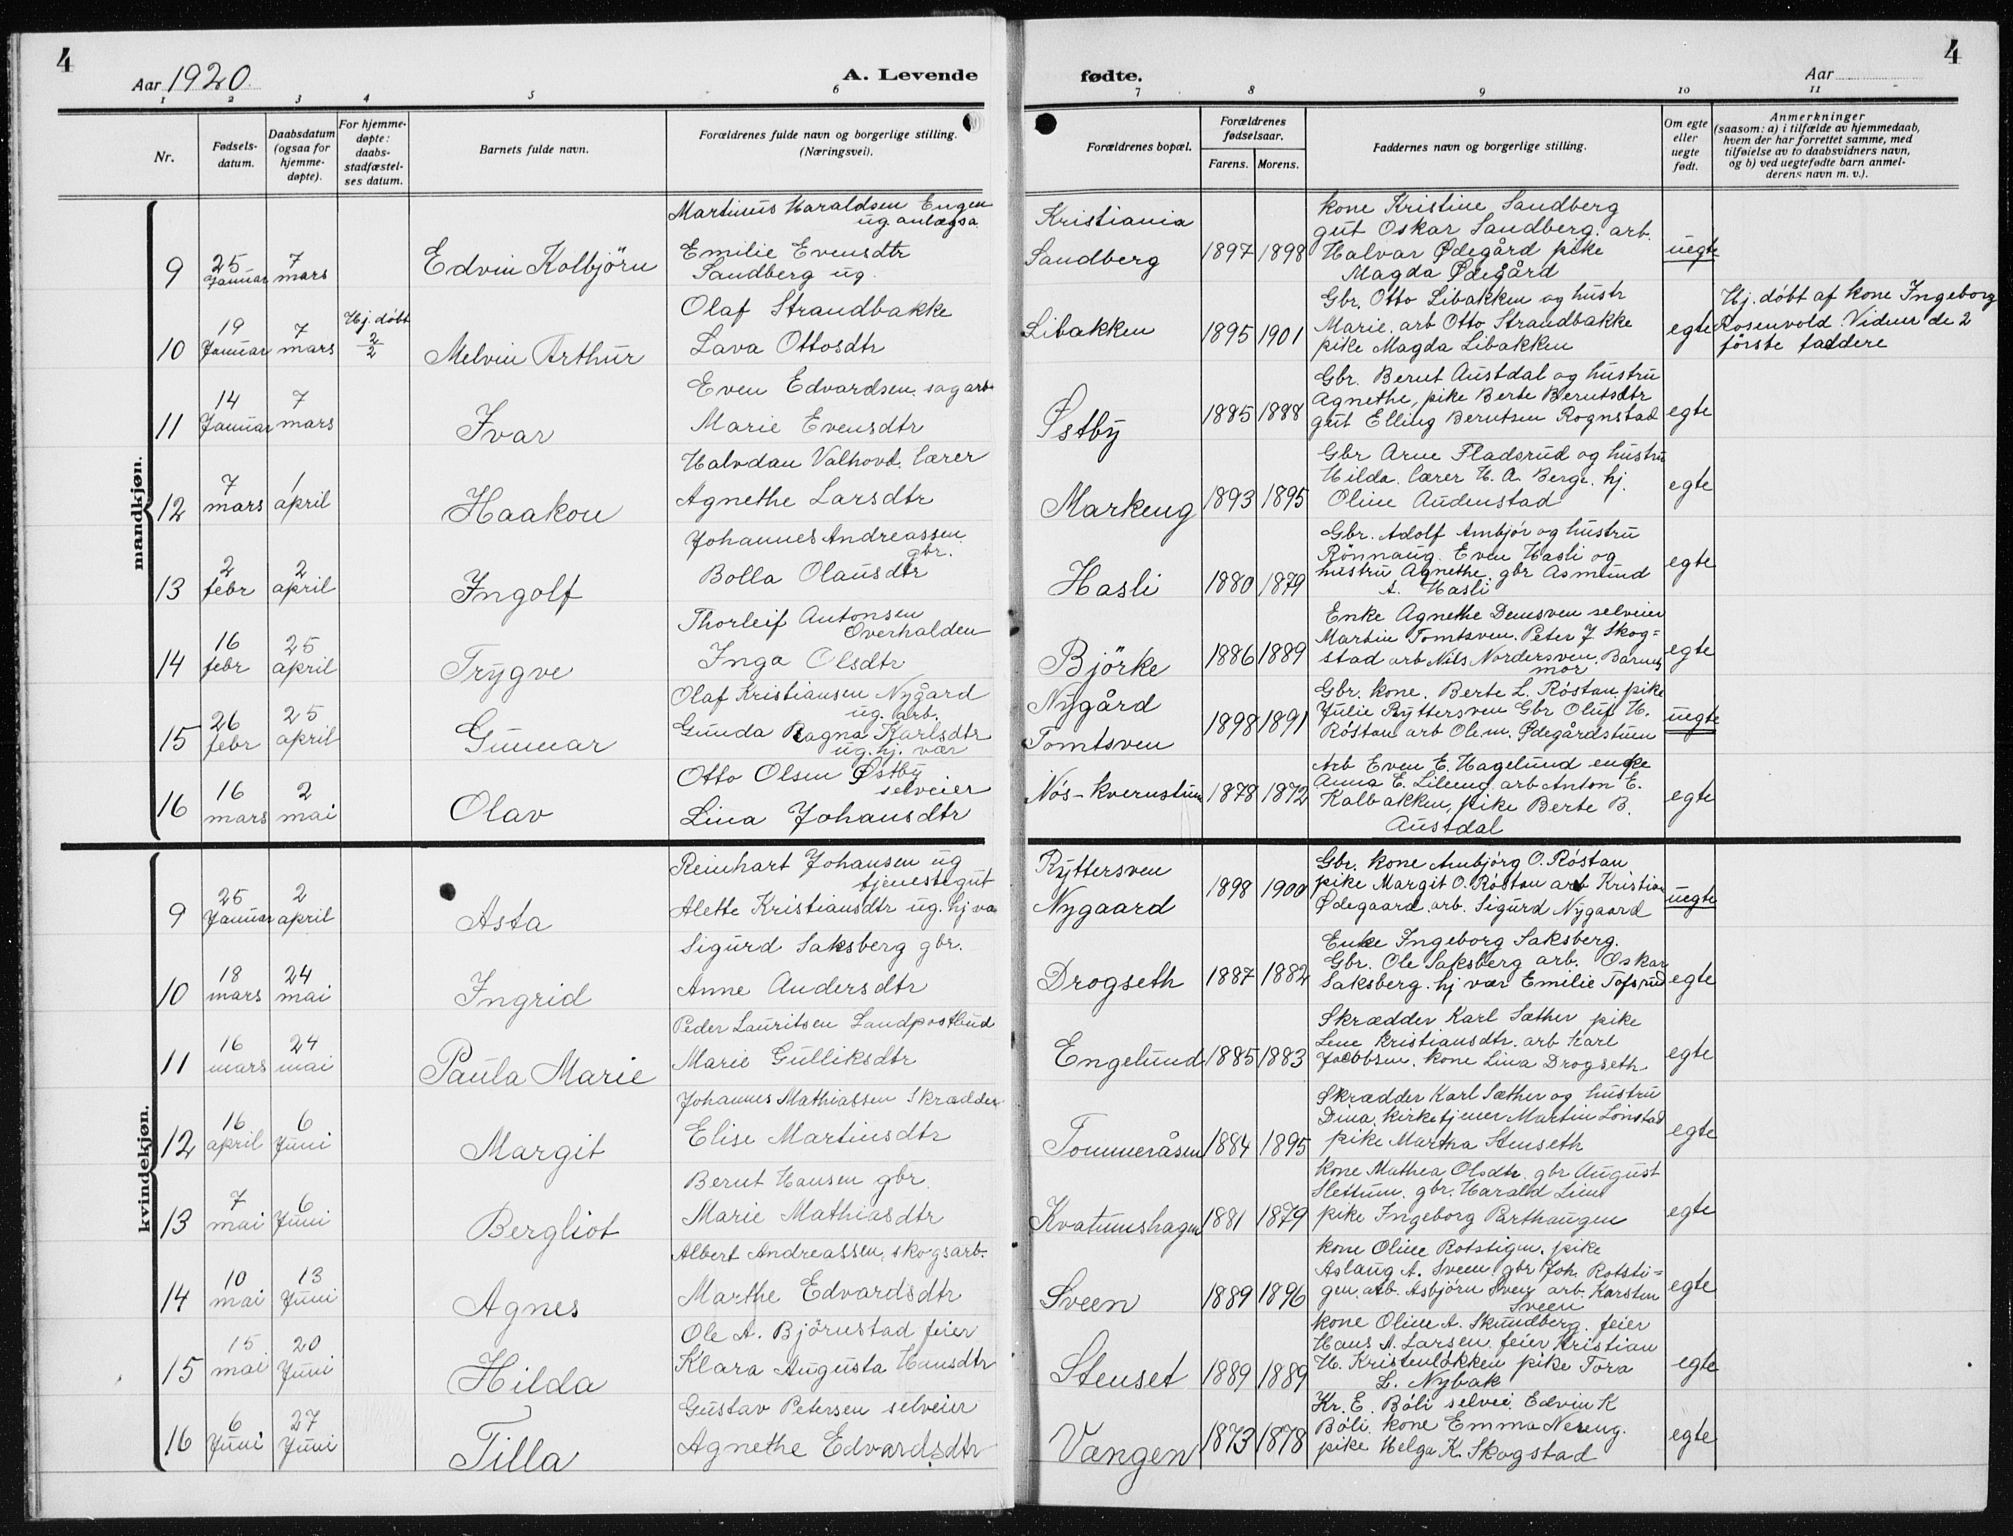 4
Aar 1920.
A. Levende fødte.
Aar
4
1 2 3 4 5 6 7 8 9 10 11
Nr.
Fødsels-datum.
Daabsdatum (ogsaa for hjemme-døpte).
For hjemme-døpte: daabs-stadfæstel-ses datum.
Barnets fulde navn.
Forældrenes fulde navn og borgerlige stilling. (Næringsvei).
Forældrenes bopæl.
Forældrenes fødselsaar.
Farens. Morens.
Faddernes navn og borgerlige stilling.
Om egte eller uegte født.
Anmerkninger
(saasom: a) i tilfælde av hjemmedaab,
hvem der har forrettet samme, med
tilføielse av to daabsvidners navn,
og b) ved uegtefødte barn anmel-
derens navn m. v.).
mandkjøn.
9 25 Januar 7 mars Edvin Kolbjörn
Martinus Haraldsen Engen
ug. anlægsa.
Emilie Evensdtr
Sandberg ug.
Kristiania
Sandberg
1897 1898
kone Kristine Sandberg
gut Oskar Sandberg. arb.
Halvar Ødegård pike
Magda Ødegård
uegte
10 19 Januar 7 mars Hj. döbt 2/2 Melvin Arthur
Olaf Strandbakke
Lava Ottosdtr
Libakken
1895 1901
Gbr. Otto Libakken og hustr
Marie. arb Otto Strandbakke
pike Magda Libakken
egte
Hj. döbt af kone Ingeborg
Rosenvold. Vidner de 2
förste faddere
11 14 Januar 7 mars Ivar
Even Edvardsen. sagarb.
Marie Evensdtr
Østby
1885 1888
Gbr. Bernt Austdal og hustru
Agnethe, pike Berte Berntsdtr
gut Elling Berntsen Rognstad
egte
12 7 mars 1 april Haakon
Halvdan Valhovd. lærer
Agnethe Larsdtr
Markeng
1893 1895
Gbr Arne Fladsrud og hustru
Hilda. lærer H. A. Berge. hj.
Oline Audenstad
egte
13 2 febr 2 april Ingolf
Johannes Andreassen.
gbr.
Bolla Olausdtr
Hasli
1880 1879
Gbr. Adolf Ambjör og hustru
Rönnaug. Even Hasli og
hustru Agnethe. gbr Asmund
A. Hasli
egte
14 16 febr 25 april Trygve
Thorleif Antonsen
Overhalden
Inga Olsdtr
Björke
1886 1889
Enke Agnethe Demsven selveier
Martin Tomtsven. Peter J Skog=
stad arb Nils Nordersven. Barnets
mor
egte
15 26 febr 25 april Gunnar
Olaf Kristiansen Nygård
ug. arb.
Gunda Ragna Karlsdtr
ug. hj. vær
Nygård
Tomtsven
1898 1891
Gbr. kone. Berte L. Röstan. pike
Julie Ryttersven Gbr Oluf H.
Röstan arb Ole m. Ødegårdstuen
uegte
16 16 mars 2 mai Olav
Otto Olsen Østby
selveier
Lina Johansdtr
Nös-kvernstuen
1878 1872
Arb Even E. Hagelund enke
Anna E. Lileng. arb Anton E.
Kalbakken, pike Berte B.
Austdal
egte
kvindekjøn.
9 25 Januar 2 april Asta
Reinhart Johansen ug
tjenestegut
Alette Kristiansdtr ug. hj væ
Ryttersven
Nygaard
1898 1900
Gbr. kone Ambjörg O. Röstan
pike Margit O. Röstan arb Kristian
Ødegaard. arb. Sigurd Nygaard
uegte
10 18 mars 24 mai Ingrid
Sigurd Saksberg gbr.
Anne Andersdtr
Drogseth
1887 1882
Enke Ingeborg Saksberg.
Gbr. Ole Saksberg arb. Oskar
Saksberg. hj vær Emilie Tofsrud
egte
11 16 mars 24 mai Paula Marie
Peder Lauritsen Landpostbud
Marie Gulliksdtr
Engelund
1885 1883
Skrædder Karl Sæther pike
Lene Kristiansdtr. arb Karl
Jacobsen. kone Lina Drogseth
egte
12 16 april 6 Juni Margit
Johannes Mathiassen Skrædder
Elise Martinsdtr
Tommeråsen
1884 1895
Skrædder Karl Sæther og hustru
Dina, kirketjener Martin Lönstad
pike Martha Stenseth
egte
13 7 mai 6 Juni Bergliot
Bernt Hansen gbr.
Marie Mathiasdtr
Kvatumshagen
1881 1879
kone Mathea Olsdtr. gbr August
Slettum. gbr. Harald Lien
pike Ingeborg Parthaugen
egte
14 10 mai 13 Juni Agnes
Albert Andreassen, skogsarb.
Marthe Edvardsdtr
Sveen
1889 1896
kone Oline Rotstigen. pike
Aslaug A. Sveen. gbr Joh. Rotsti=
gen. arb. Asbjörn Sveen arb. Karsten
Sveen
egte
15 15 mai 20 Juni Hilda
Ole A. Björnstad feier
Klara Augusta Hansdtr
Stenset
1889 1889
kone Oline A. Skundberg. feier
Hans A. Larsen. feier Kristian
H. Kristenlökken pike Tora
L. Nybak
egte
16 6 Juni 27 Juni Tilla
Gustav Petersen selveier
Agnethe Edvardsdtr
Vangen
1873 1878
Kr. E. Böli selvei. Edvin K
Böli. kone Emma Nereng.
pike Helga K. Skogstad
egte